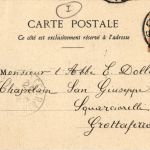 I
CARTE POSTALE
Ce côté est exclusivement réservé à l'adresse
Monsieur l'Abbé E. Doll
Chapelain San Giuseppe
Grottaferr